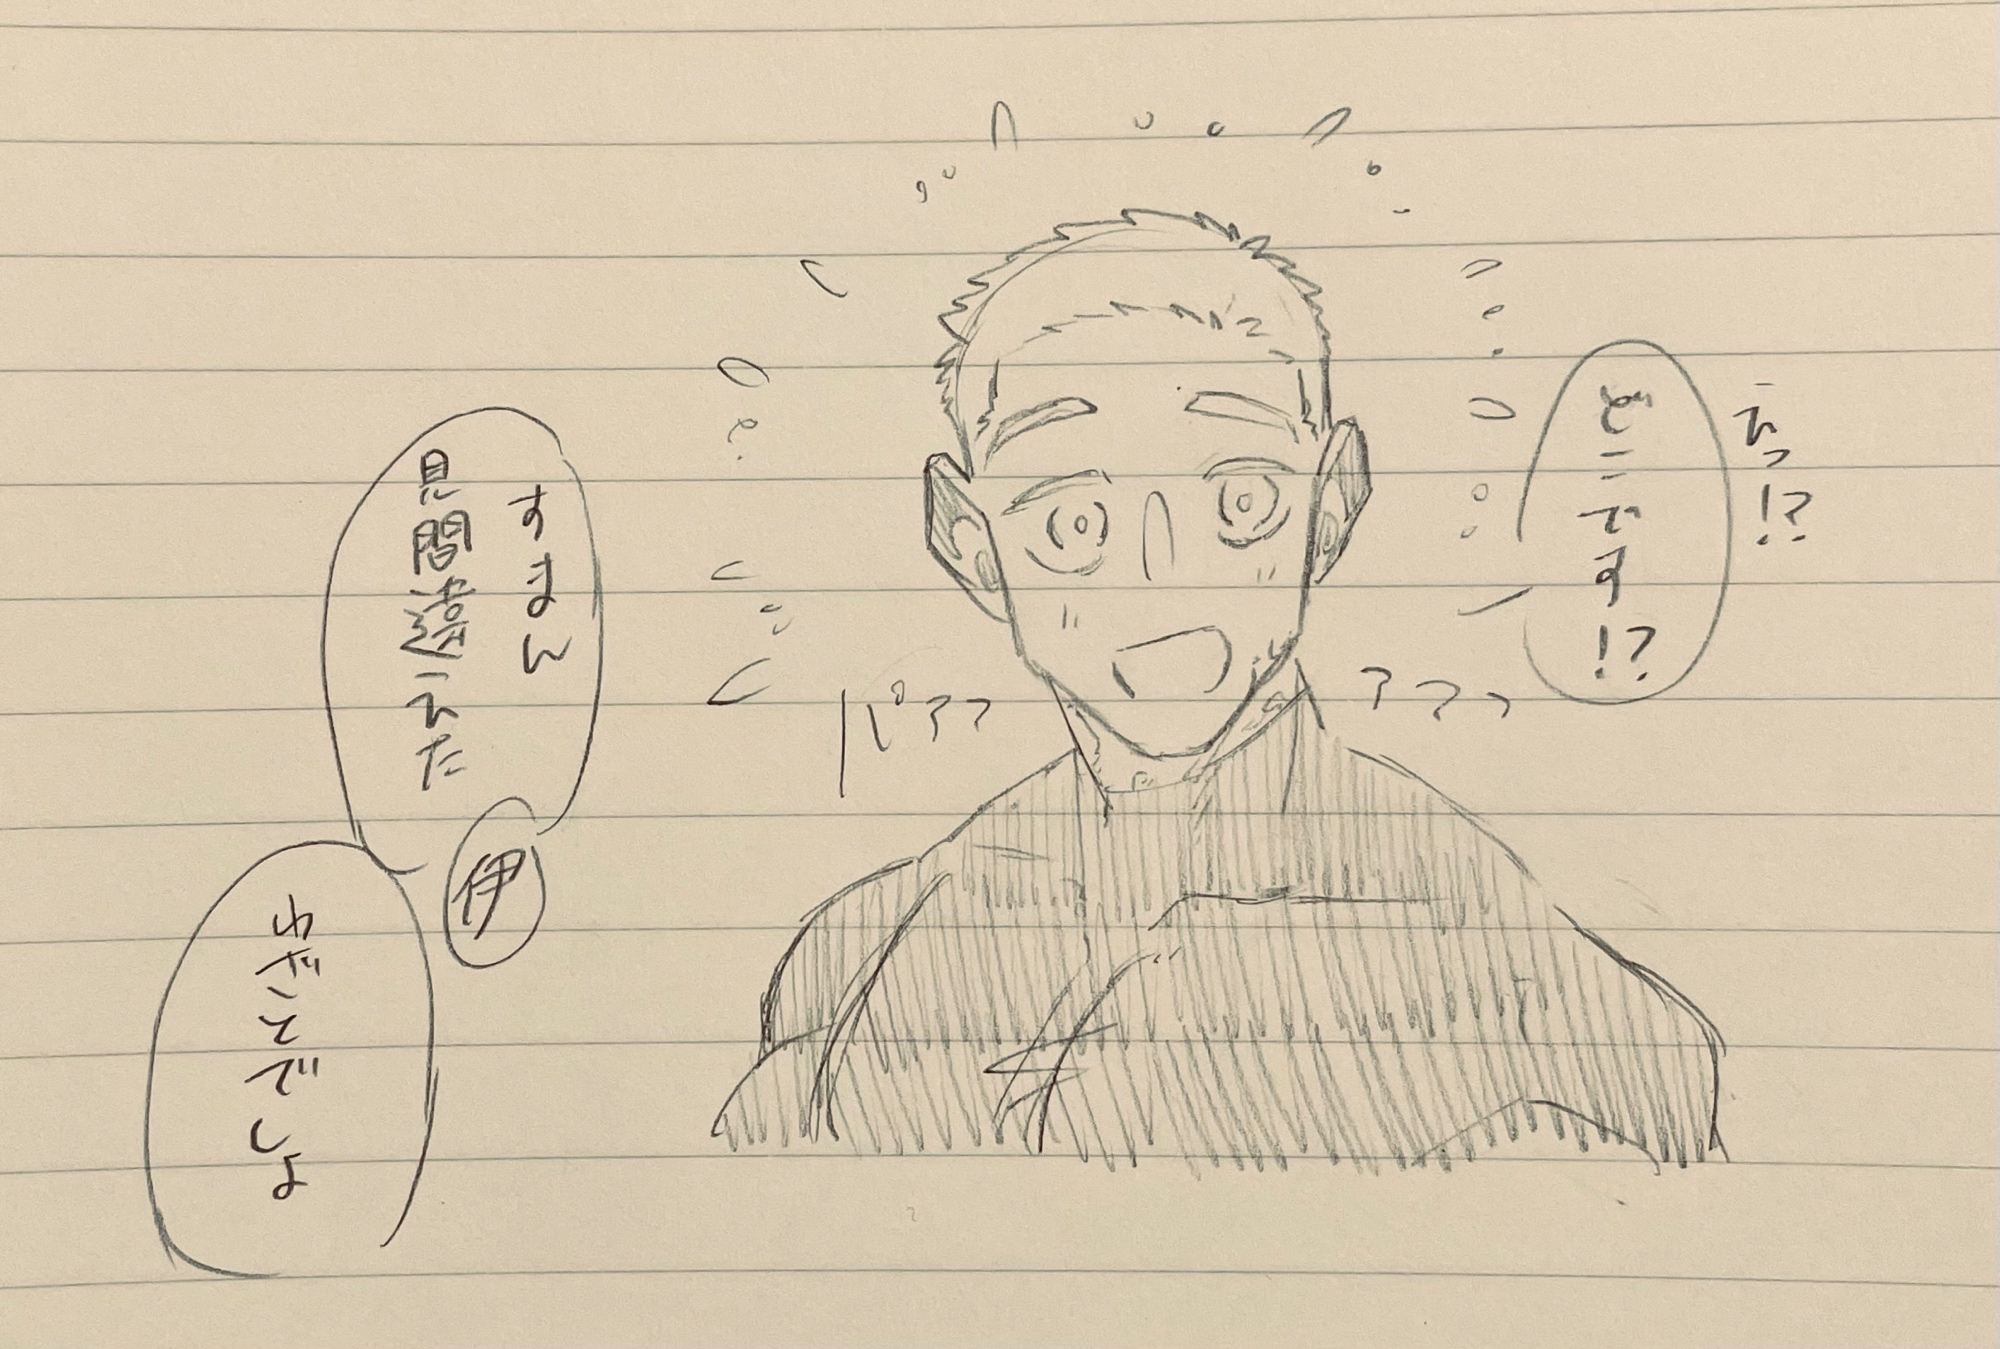 えっ!?
どこです!?
パァァ
アアッ
すまん
見間違えた
伊
わざとでしょ